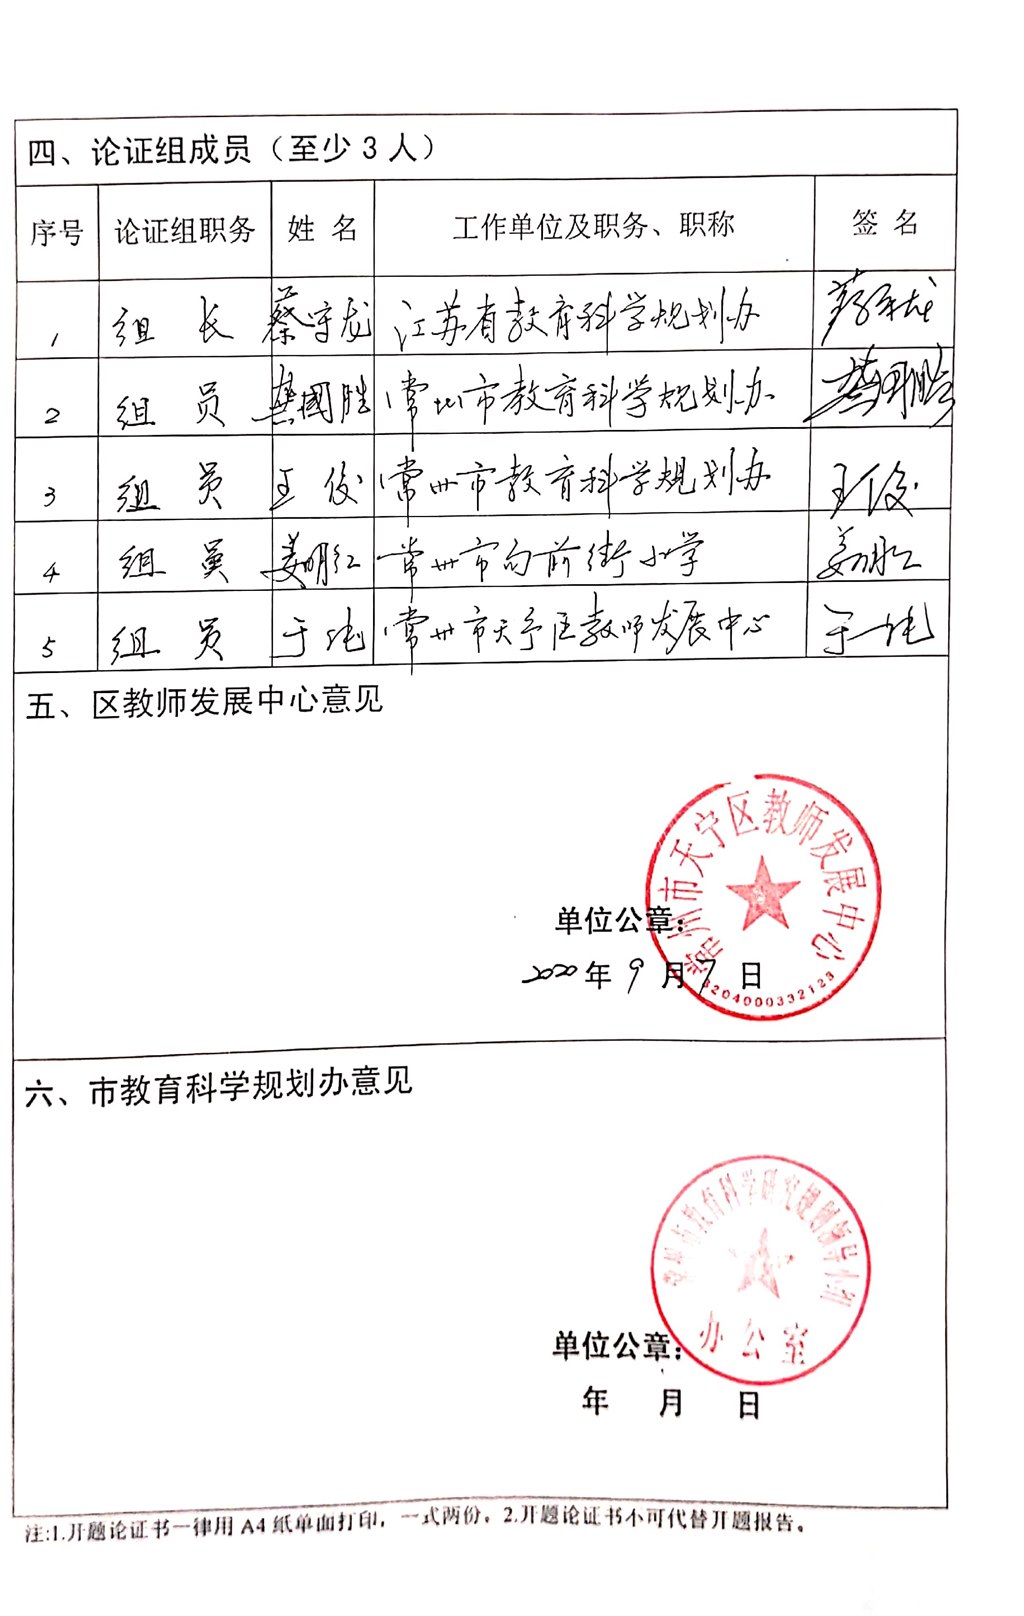 四、论证组成员（至少3人）
序号 论证组职务 姓 名 工作单位及职务、职称 签 名
1 组 长 蔡守龙 江苏省教育科学规划办 蔡守龙
2 组 员 龚國胜 常州市教育科学规划办
3 组 员 王 俊 常州市教育科学规划办 王俊
4 组 员 姜明红 常州市局前街小学 姜明红
5 组 员 于 纯 常州市天宁区教师发展中心 于纯
五、区教师发展中心意见
常州市天宁区教师发展中心
单位公章：
2020年9月7日
3204000332123
六、市教育科学规划办意见
常州市教育科学研究规划领导小组
办公室
单位公章：
年 月 日
注:1.开题论证书一律用A4纸单面打印，一式两份。2.开题论证书不可代替开题报告。